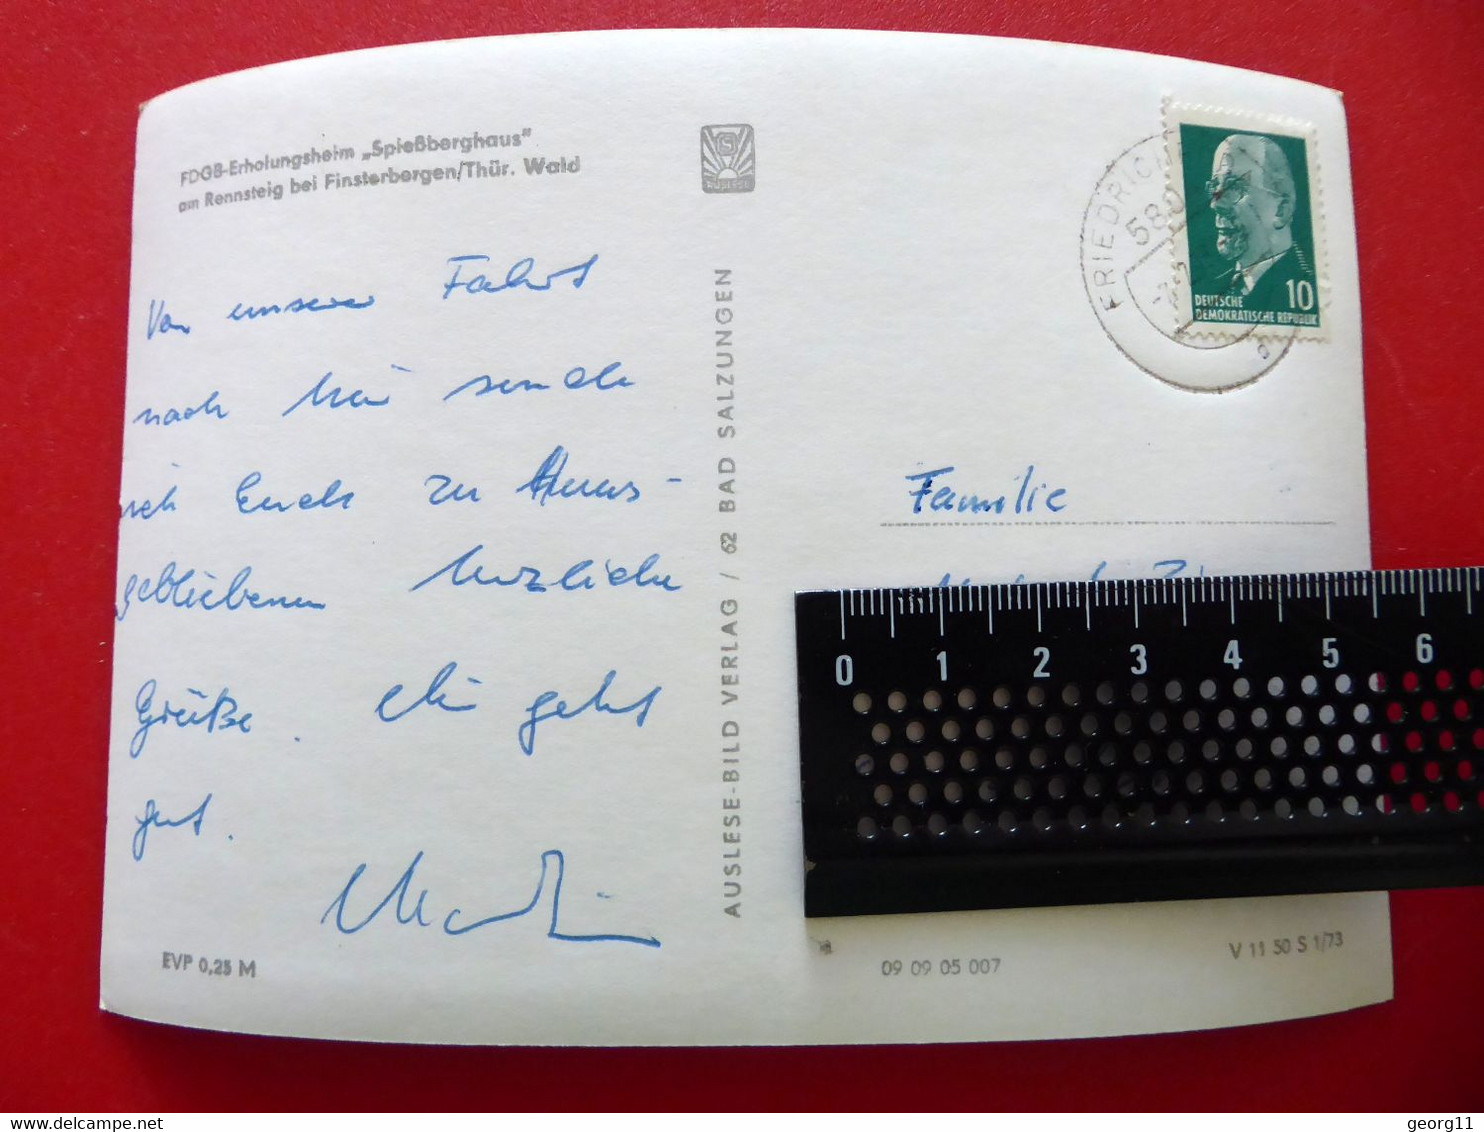 FDGB-Erholungsheim „Spießberghaus"
am Rennsteig bei Finsterbergen/Thür. Wald
Von unserer Fahrt
nach hier sende
ich Euch zu Haus-
gebliebenen herzliche
Grüße. Mir geht
gut.
Martin
EVP 0,25 M
AUSLESE-BILD VERLAG / 62 BAD SALZUNGEN
AUSLESE
580
10
DEUTSCHE
DEMOKRATISCHE REPUBLIK
Familie
0 1 2 3 4 5 6
09 09 05 007
V 11 50 S 1/73
georg11